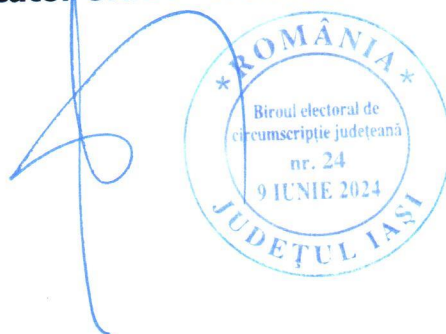 * ROMÂNIA *
Biroul electoral de
circumscripție județeană
nr. 24
9 IUNIE 2024
JUDEȚUL IAȘI